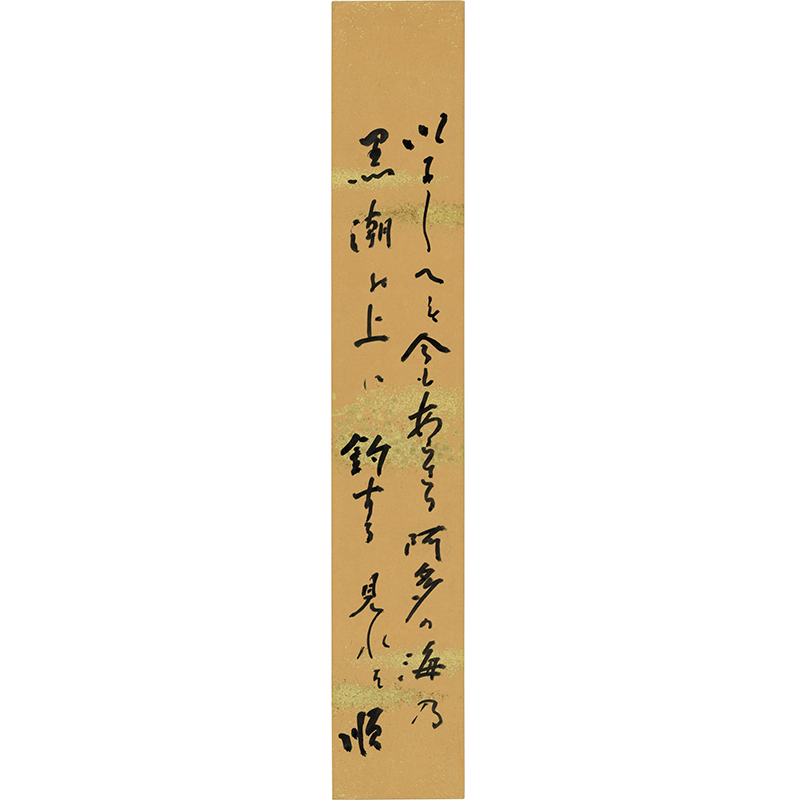 いにしへも今もあらさる阿多の海乃
黒潮の上に釣する見れは 順